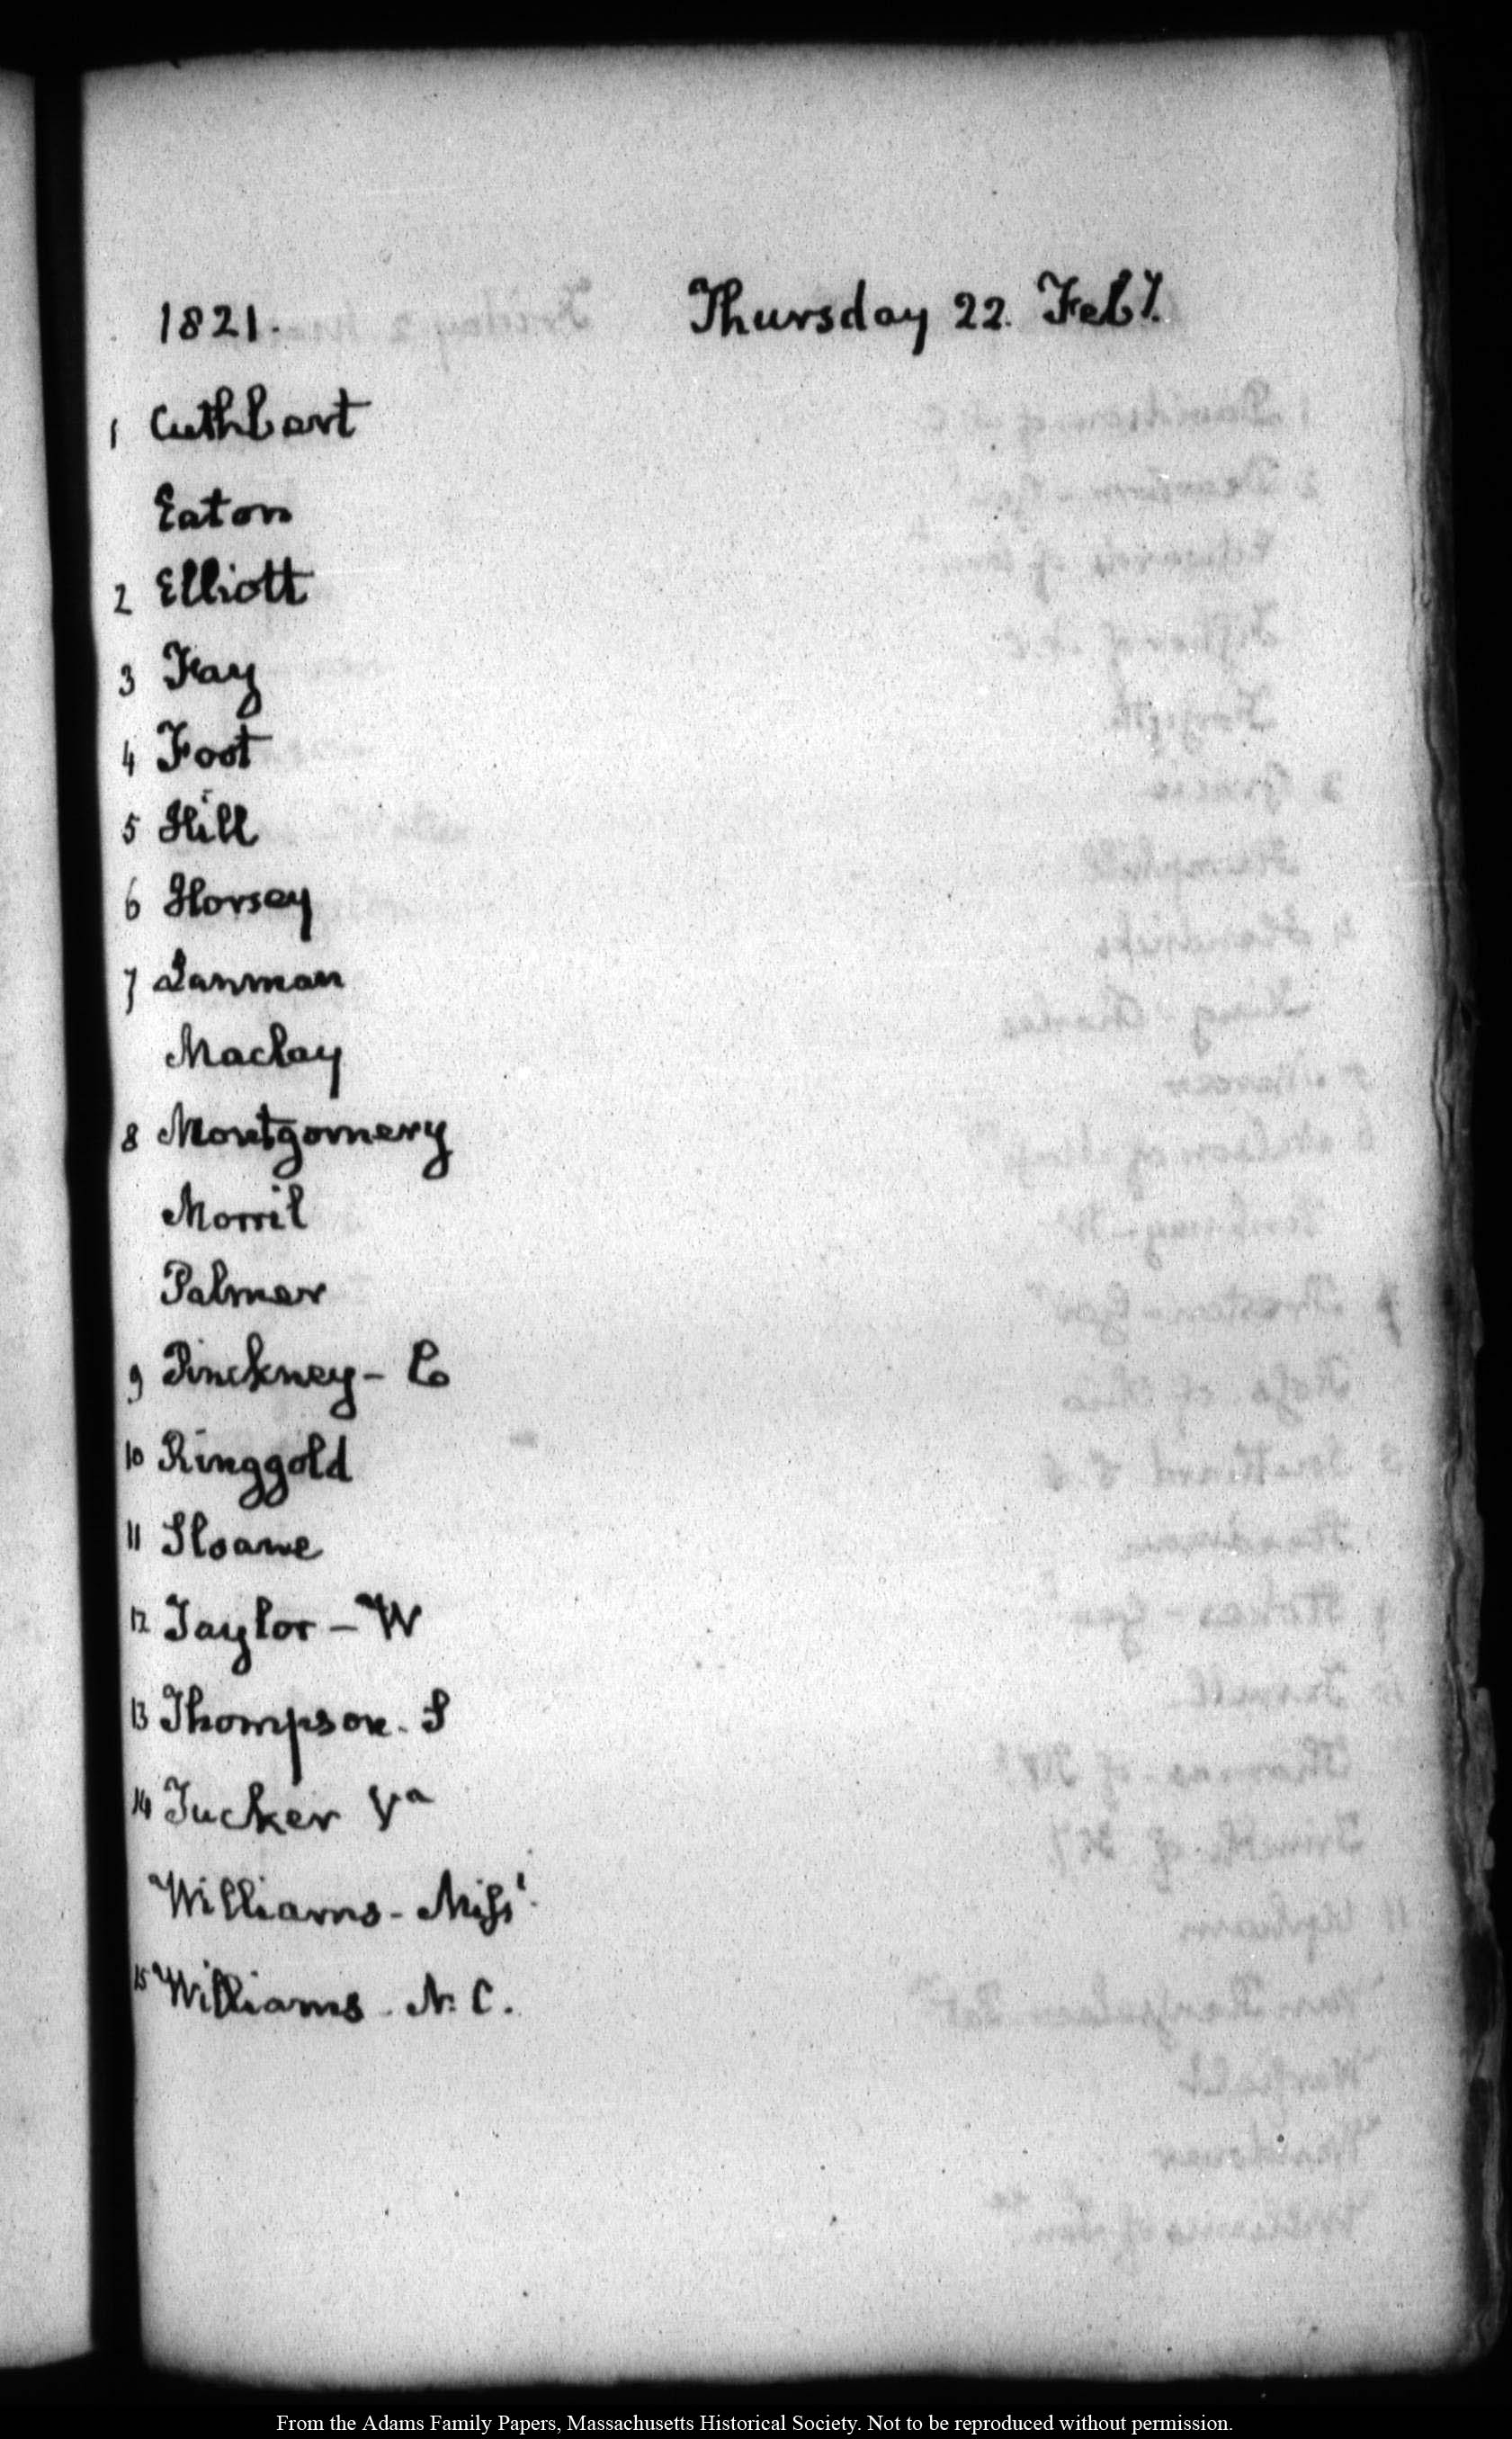 1821. Thursday 22. Feby.
1 Cuthbert
Eaton
2 Elliott
3 Fay
4 Foot
5 Hill
6 Horsey
7 Lanman
Maclay
8 Montgomery
Morril
Palmer
9 Pinckney - Co
10 Ringgold
11 Sloane
12 Taylor - W
13 Thompson. S
14 Tucker Va
Williams - Missi.
15 Williams - N. C.
From the Adams Family Papers, Massachusetts Historical Society. Not to be reproduced without permission.